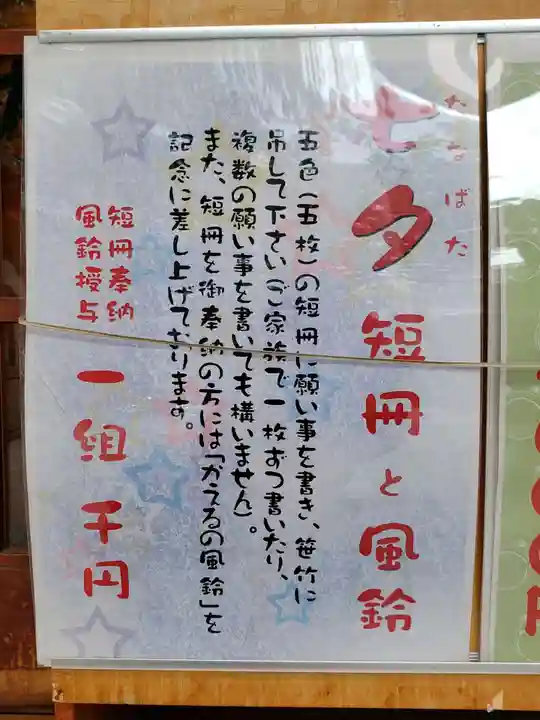 七夕短冊と風鈴
たなばた
五色(五枚)の短冊に願い事を書き、笹竹に
吊して下さい(ご家族で一枚ずつ書いたり、
複数の願い事を書いても構いません)。
また、短冊を御奉納の方には「かえるの風鈴」を
記念に差し上げております。
短冊奉納
風鈴授与
一組千円